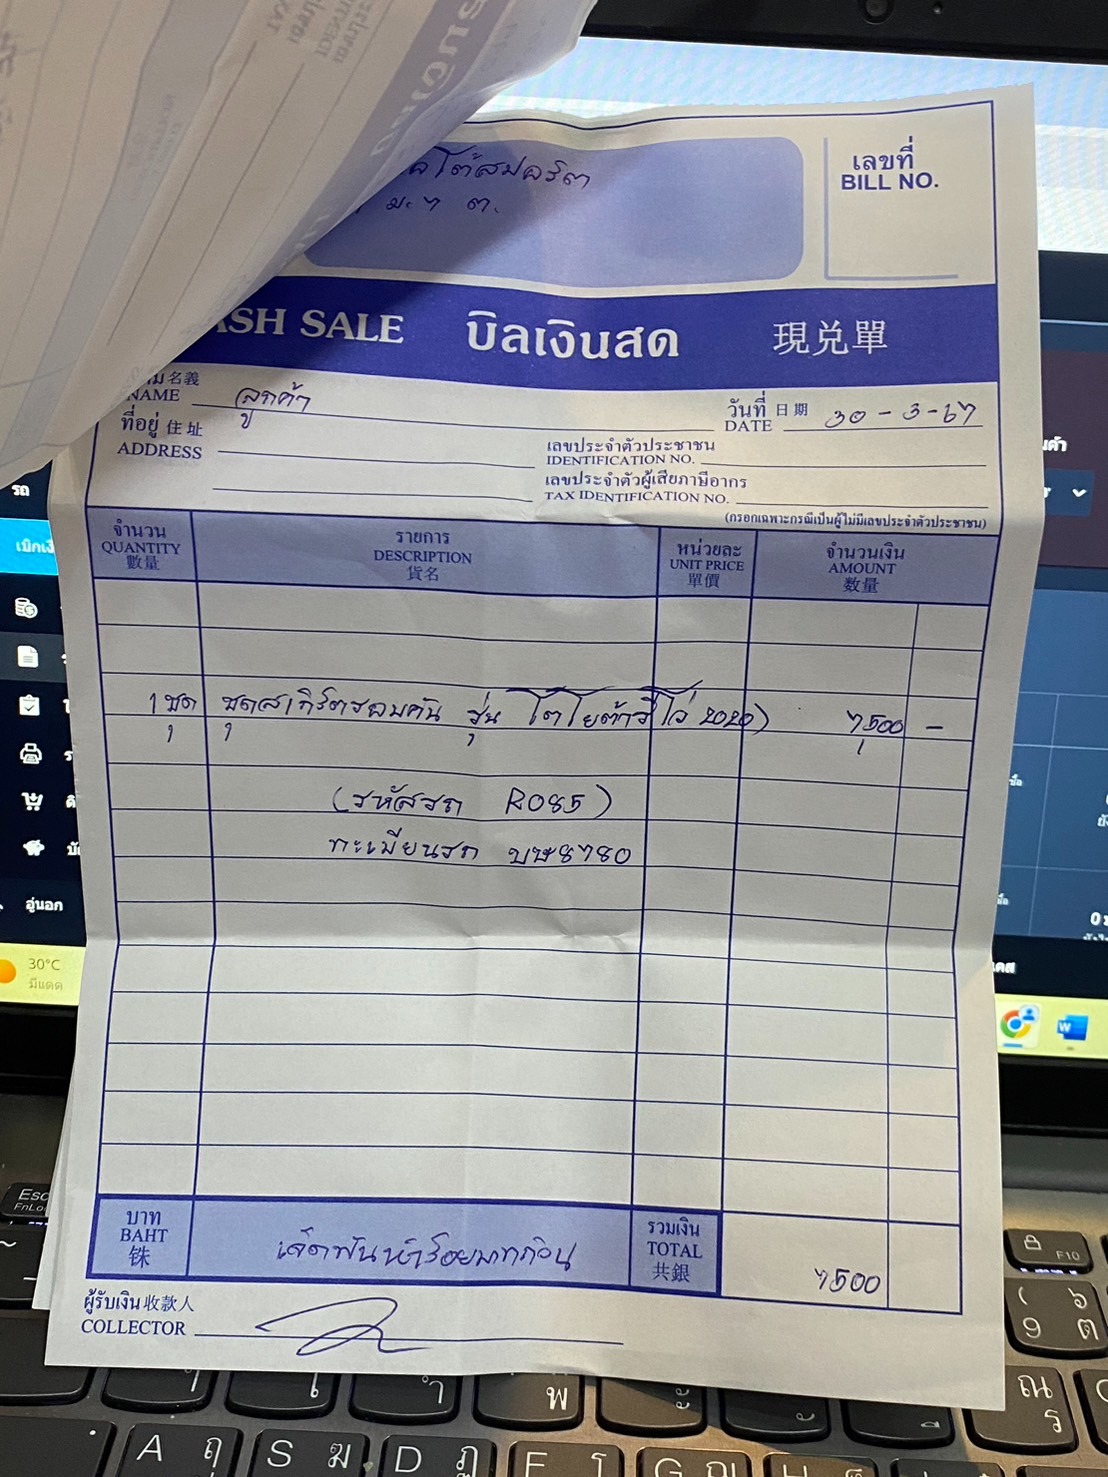 โต้สปอร์ต
ม.7 ต.
เลขที่
BILL NO.
ASH SALE บิลเงินสด 現兑單
名義
NAME ลูกค้า
วันที่ 日期
DATE 30-3-67
ที่อยู่ 住址
ADDRESS
เลขประจำตัวประชาชน
IDENTIFICATION NO.
เลขประจำตัวผู้เสียภาษีอากร
TAX IDENTIFICATION NO.
(กรอกเฉพาะกรณีเป็นผู้ไม่มีเลขประจำตัวประชาชน)
จำนวน รายการ หน่วยละ จำนวนเงิน
QUANTITY DESCRIPTION UNIT PRICE AMOUNT
數量 貨名 單價 数量
1 ชุด ชุดสเกิร์ตรอบคัน รุ่น โตโยต้ารีโว่ 2020) 7,500 -
(รหัสรถ R085)
ทะเบียนรถ บษ8780
บาท
BAHT
铢
เจ็ดพันห้าร้อยบาทถ้วน
รวมเงิน
TOTAL
共銀
7500
ผู้รับเงิน 收款人
COLLECTOR
รถ
อู่นอก
30°C
มีแดด
Esc
FnLo
F10
A ฤ
S ฆ
D ฏ
พ
ะ
ำ
( ๖
9 ต
ณ
ร